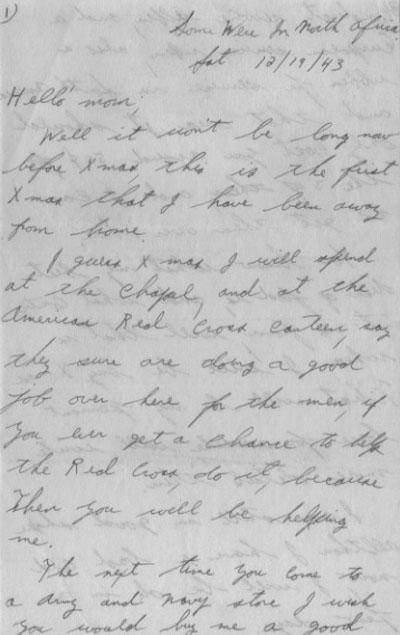 1)
Some Were In North Africa
Sat 12/19/43
Hello mom;
Well it won't be long now
before Xmas, this is the first
Xmas that I have been away
from home.
I guess Xmas I will spend
at the Chapel, and at the
American Red Cross canteen, say
they sure are doing a good
job over here for the men, if
you ever get a chance to help
the Red Cross, do it, because
then you will be helping
me.
The next time you come to
a army and navy store I wish
you would buy me a good